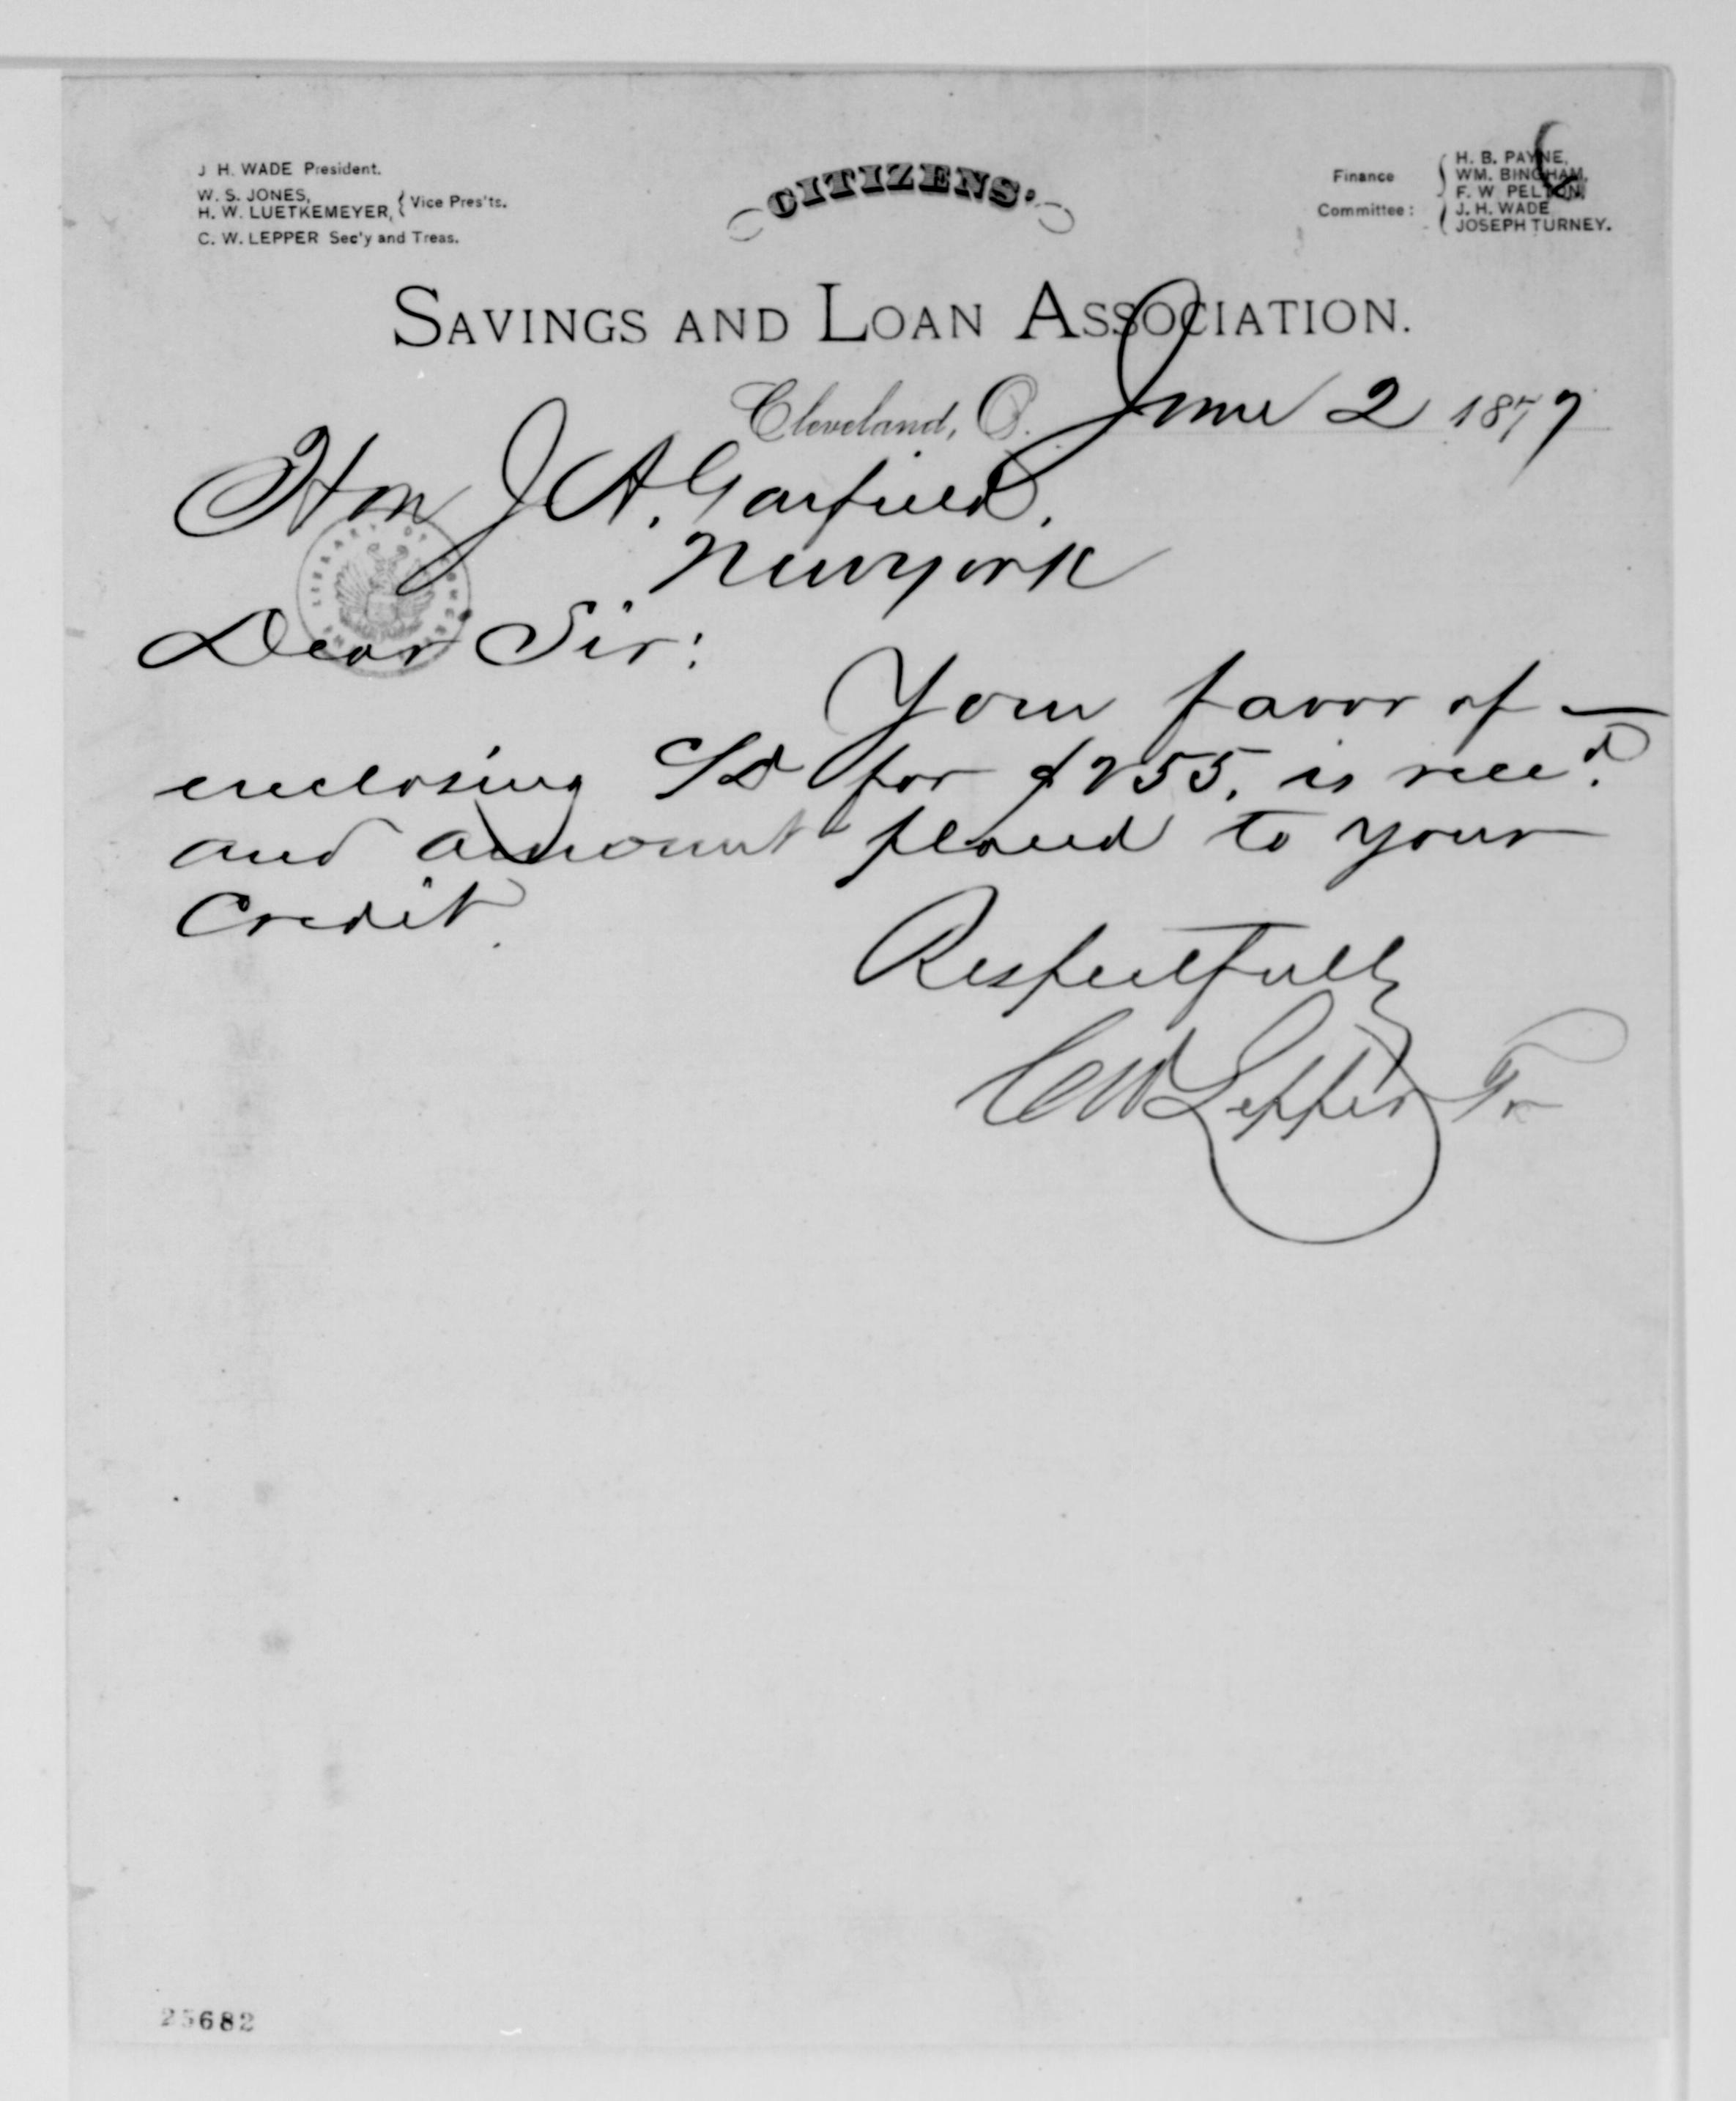 J H. WADE President.
W. S. JONES,
H. W. LUETKEMEYER, } Vice Pres'ts.
C. W. LEPPER Sec'y and Treas.
CITIZENS'
Finance Committee:
H. B. PAYNE,
WM. BINGHAM,
F. W. PELTON,
J. H. WADE
JOSEPH TURNEY.
SAVINGS AND LOAN ASSOCIATION.
Cleveland, O. June 2 1877
Hon J A. Garfield.
New york
Dear Sir:
Your favor of —
enclosing for $255. is recd.
and amount placed to your
Credit.
Respectfully
C W Lepper Tr
LIBRARY OF CONGRESS
25682